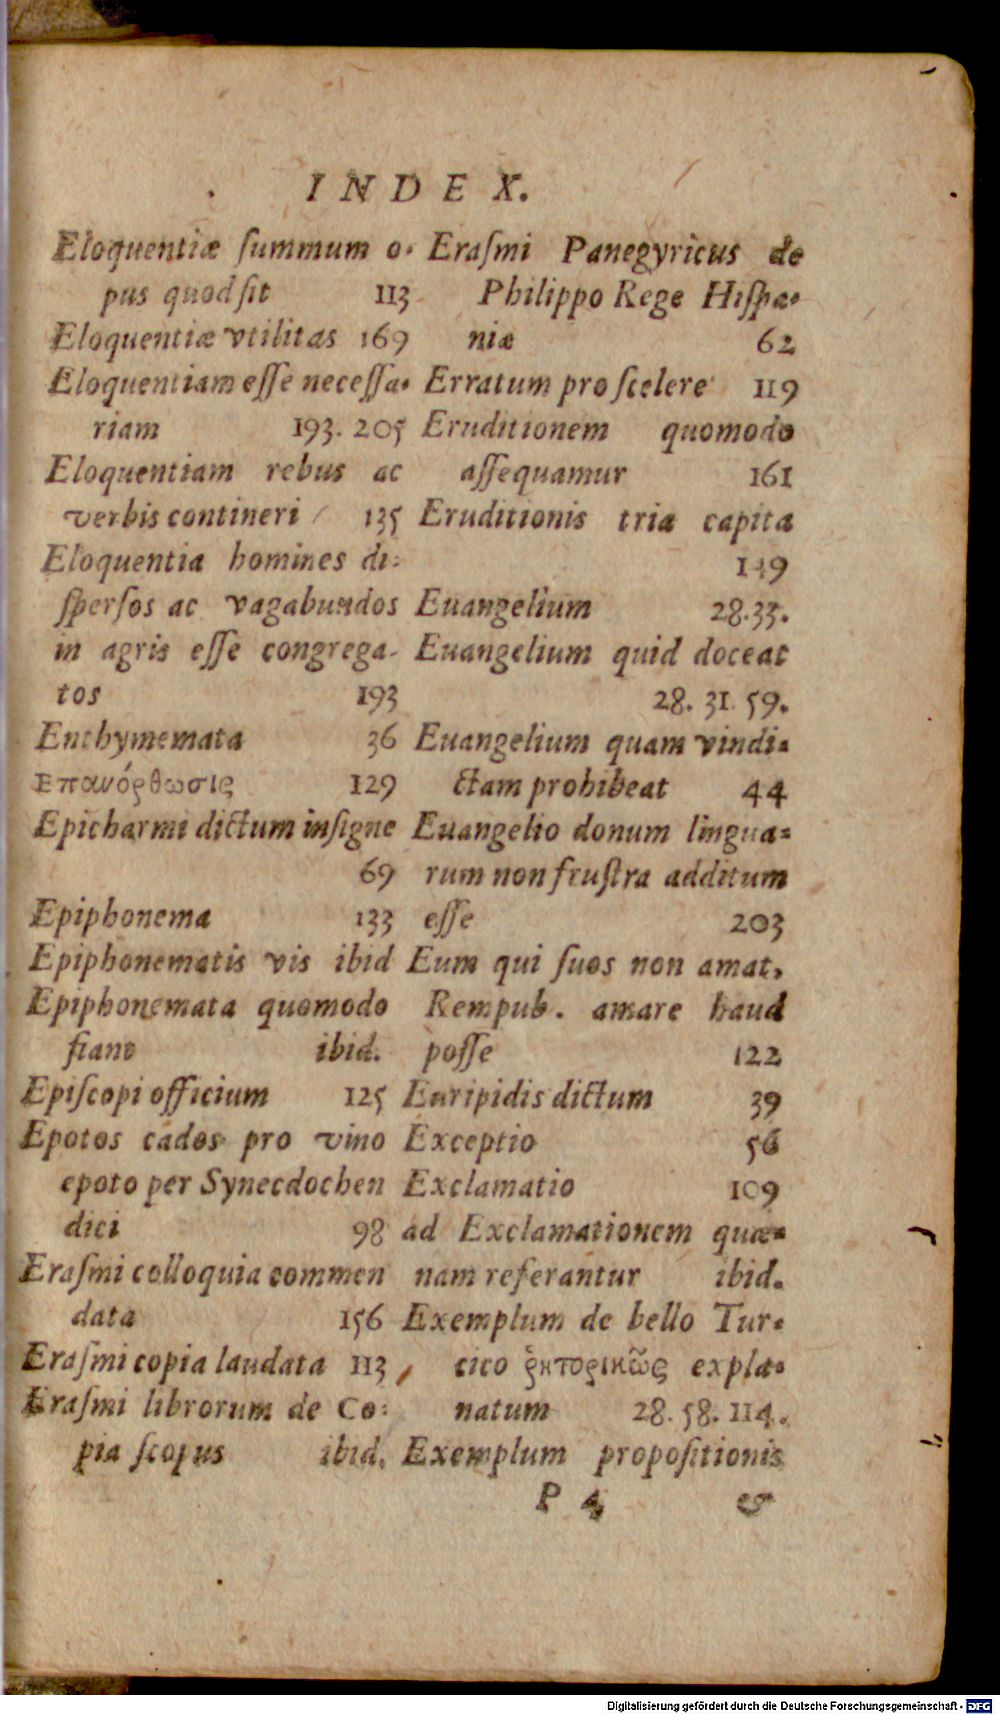 INDEX.
Eloquentiæ ſummum o-
pus quod ſit 113
Eloquentiæ vtilitas 169
Eloquentiam eſſe neceſſa-
riam 193. 205
Eloquentiam rebus ac
verbis contineri 135
Eloquentia homines di-
ſperſos ac vagabundos
in agris eſſe congrega-
tos 193
Enthymemata 36
Επανόρθωσις 129
Epicharmi dictum inſigne
69
Epiphonema 133
Epiphonematis vis ibid
Epiphonemata quomodo
fiant ibid.
Epiſcopi officium 125
Epotos cados pro vino
epoto per Synecdochen
dici 98
Eraſmi colloquia commen
data 156
Eraſmi copia laudata 113
Eraſmi librorum de Co-
pia ſcopus ibid.
Eraſmi Panegyricus de
Philippo Rege Hiſpa-
niæ 62
Erratum pro ſcelere 119
Eruditionem quomodo
aſſequamur 161
Eruditionis tria capita
149
Euangelium 28.33.
Euangelium quid doceat
28. 31. 59.
Euangelium quam vindi-
ctam prohibeat 44
Euangelio donum lingua-
rum non fruſtra additum
eſſe 203
Eum qui ſuos non amat,
Rempub. amare haud
poſſe 122
Euripidis dictum 39
Exceptio 56
Exclamatio 109
ad Exclamationem quæ-
nam referantur ibid.
Exemplum de bello Tur-
cico ῥητορικῶς expla-
natum 28. 58. 114.
Exemplum propoſitionis
P 4 &
Digitalisierung gefördert durch die Deutsche Forschungsgemeinschaft - DFG